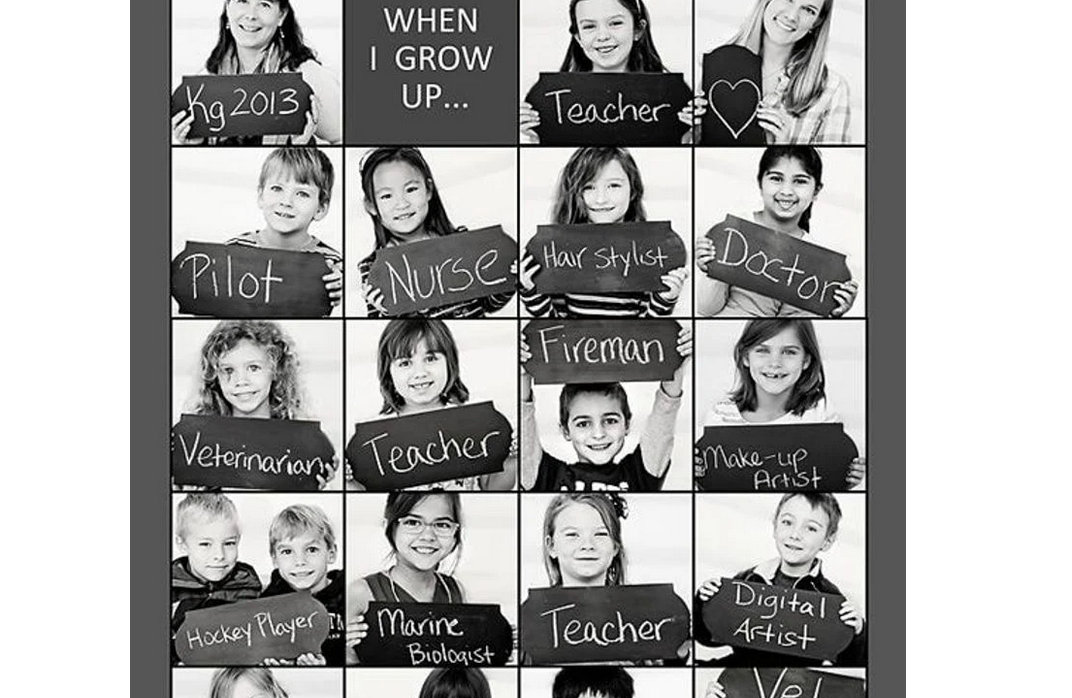 Kg 2013
WHEN
I GROW
UP...
Teacher
Pilot
Nurse
Hair Stylist
Doctor
Veterinarian
Teacher
Fireman
Make-up
Artist
Hockey Player
Marine
Biologist
Teacher
Digital
Artist
Vet